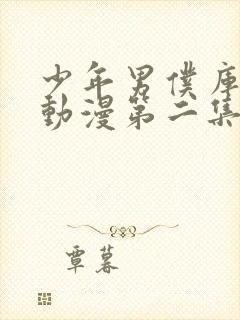 少年男僕庫
動漫第二集
覃暮